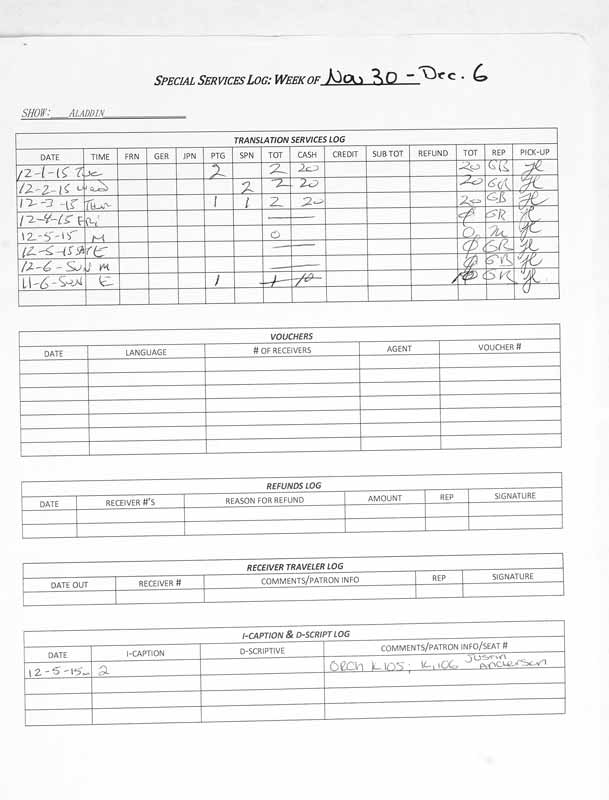 SPECIAL SERVICES LOG: WEEK OF Nov 30 - Dec. 6
SHOW: ALADDIN
TRANSLATION SERVICES LOG
DATE TIME FRN GER JPN PTG SPN TOT CASH CREDIT SUB TOT REFUND TOT REP PICK-UP
12-1-15 Tue 2 2 20 20 GB
12-2-15 Wed 2 2 20 20 GB
12-3-15 Thur 1 1 2 20 20 GB
12-4-15 FRI GB
12-5-15 M 0 0
12-5-15 SAT E GB
12-6-SUN M GB
11-6-SUN E 1 1 10 10 GB
VOUCHERS
DATE LANGUAGE # OF RECEIVERS AGENT VOUCHER #
REFUNDS LOG
DATE RECEIVER #'S REASON FOR REFUND AMOUNT REP SIGNATURE
RECEIVER TRAVELER LOG
DATE OUT RECEIVER # COMMENTS/PATRON INFO REP SIGNATURE
I-CAPTION & D-SCRIPT LOG
DATE I-CAPTION D-SCRIPTIVE COMMENTS/PATRON INFO/SEAT #
12-5-15 2 ORCH K105; K106 Justin Anderson